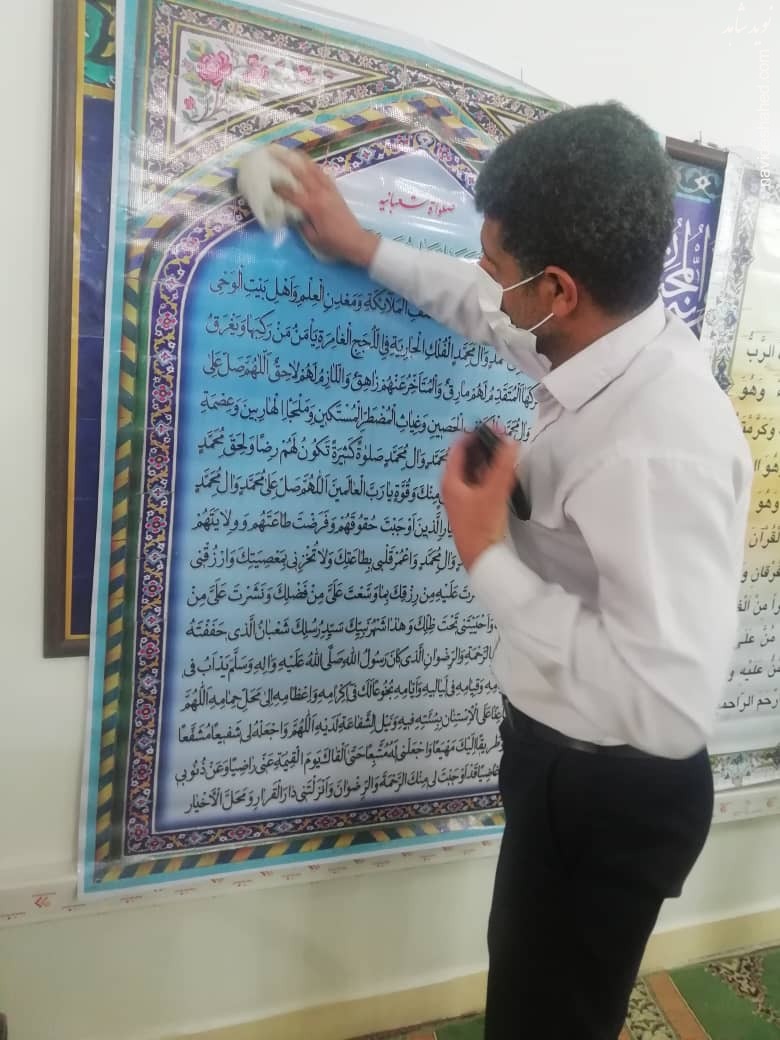 نوید شاهد
navideshahed.com
صلواة شعبانیه
الْمَلائِكَةِ وَمَعْدِنِ الْعِلْمِ وَاَهْلِ بَيْتِ الْوَحْىِ
وَالِ مُحَمَّدٍ الْفُلْكِ الْجارِيَةِ فِى اللُّجَجِ الْغامِرَةِ يَأْمَنُ مَنْ رَكِبَها وَيَغْرَقُ
اَلْمُتَقَدِّمُ لَهُمْ مارِقٌ وَالْمُتَاَخِّرُ عَنْهُمْ زاهِقٌ وَاللّازِمُ لَهُمْ لاحِقٌ اَللّهُمَّ صَلِّ عَلى
وَالِ مُحَمَّدٍ الْحَصينِ وَغِياثِ الْمُضْطَرِّ الْمُسْتَكينِ وَمَلْجَاءِ الْهارِبينَ وَعِصْمَةِ
مُحَمَّدٍ وَالِ مُحَمَّدٍ صَلوةً كَثيرَةً تَكُونُ لَهُمْ رِضًا وَلِحَقِّ مُحَمَّدٍ
مِنْكَ وَقُوَّةٍ يا رَبَّ الْعالَمينَ اَللّهُمَّ صَلِّ عَلى مُحَمَّدٍ وَالِ مُحَمَّدٍ
الَّذينَ اَوْجَبْتَ حُقُوقَهُمْ وَفَرَضْتَ طاعَتَهُمْ وَوِلايَتَهُمْ
وَالِ مُحَمَّدٍ وَاعْمُرْ قَلْبى بِطاعَتِكَ وَلا تُخْزِنى بِمَعْصِيَتِكَ وَارْزُقْنى
عَلَيْهِ مِنْ رِزْقِكَ بِما وَسَّعْتَ عَلَىَّ مِنْ فَضْلِكَ وَنَشَرْتَ عَلَىَّ مِنْ
وَاَحْيَيْتَنى تَحْتَ ظِلِّكَ وَهذا شَهْرُ نَبِيِّكَ سَيِّدِ رُسُلِكَ شَعْبانُ الَّذى حَفَفْتَهُ
الرَّحْمَةِ وَالرِّضْوانِ الَّذى كانَ رَسُولُ اللهِ صَلَّى اللهُ عَلَيْهِ وَالِهِ وَسَلَّمَ يَدْاَبُ فى
وَقِيامِهِ فى لَياليهِ وَاَيّامِهِ بُخُوعًا لَكَ فى اِكْرامِهِ وَاِعْظامِهِ اِلى مَحَلِّ حِمامِهِ اَللّهُمَّ
عَلَى الْاِسْتِنانِ بِسُنَّتِهِ فيهِ وَنَيْلِ الشَّفاعَةِ لَدَيْهِ اَللّهُمَّ وَاجْعَلْهُ لى شَفيعًا مُشَفَّعًا
طَريقًا اِلَيْكَ مَهْيَعًا وَاجْعَلْنى لَهُ مُتَّبِعًا حَتّى اَلْقاكَ يَوْمَ الْقِيمَةِ عَنّى راضِيًا وَعَنْ ذُنُوبى
قَدْ اَوْجَبْتَ لى مِنْكَ الرَّحْمَةَ وَالرِّضْوانَ وَاَنْزَلْتَنى دارَ الْقَرارِ وَمَحَلَّ الْاَخْيارِ
وَهُوَ
وَهُوَ
الْقُرْآنَ